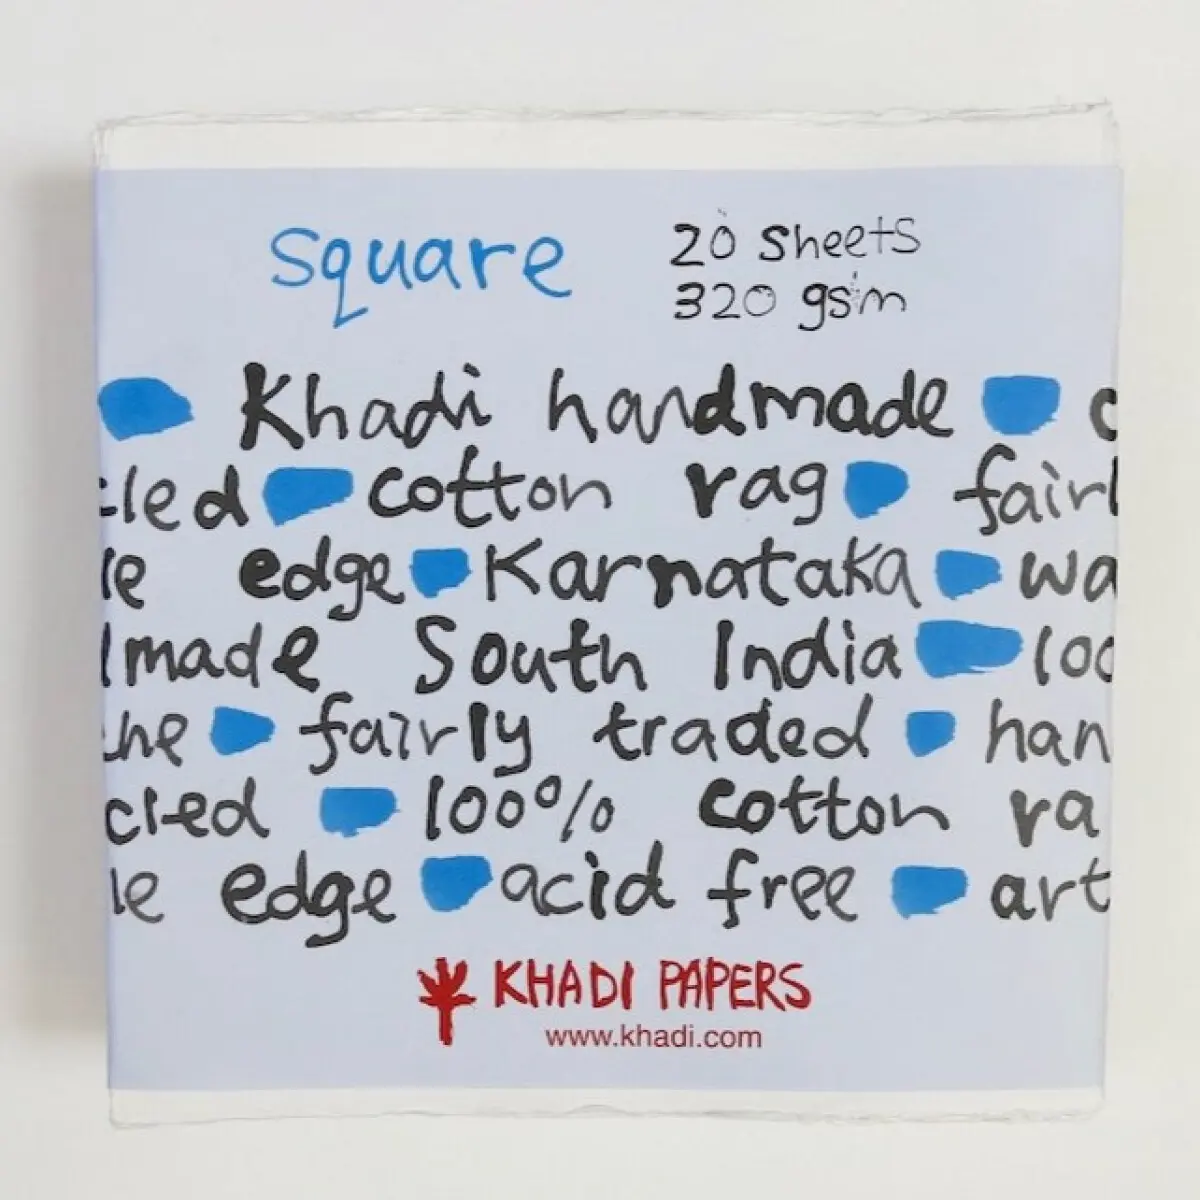 square
20 sheets
320 gsm
Khadi handmade c
cled cotton rag fairl
le edge Karnataka wa
dmade South India 100
che fairly traded han
cled 100% cotton ra
le edge acid free art
KHADI PAPERS
www.khadi.com